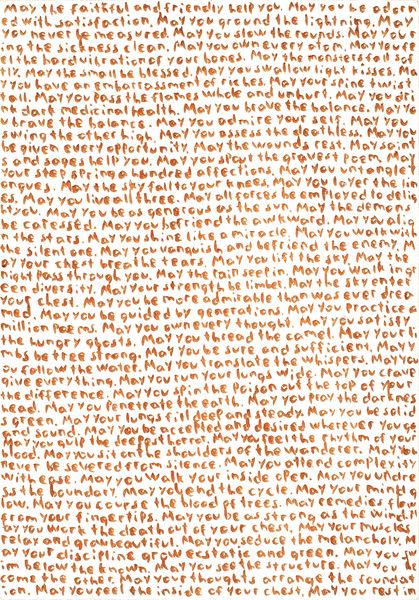 May the faithful and friendly help you. May you be ador
ed with satisfaction. May you ground the lightning. May
you never be measured. May you slow the rounds. May you
ing the sickness clean. May you own every atom. May you fe
el the hard vibration of your bones. May the monsters fall sof
tly. May the small be blessed. May you swallow light kisses. M
ay you have an embarrassment of riches. May your spine twist
tall. May you pass the flame whole and unhurt. May you dri
nk dark medicinal health. May you brave the balance. May yo
u brave the balance. May you admire your self. May you
swing the other hip. May you assess the deathless. May you
be given every opportunity. May the wounds rest. May sain
ts and sages help you. May you spout the gravest poem. May
your step spring a hundred affections. May you untangle t
ongues. May the sky fall to your knees. May you layer the li
es. May you live all three. May all forces be employed to deli
ght you. May you be as generous as the sun. May the demons
be caressed. May you befriend the awkward. May you alig
n the stars. May you shine like a miracle. May you walk with
the silent one. May you vanquish and befriend the enemy. M
ay your chest breathe tears. May you lift the sky. May the
light pass through you. May the rain seep in. May you walk in gr
een diversity. May your strength be limber. May the sky enter
your chest. May you be more admirable than was ever drea
med. May you be guided by generations. May you practice a
million poems. May you own every thought. May you satisfy
the hungry ghosts. May you thread the camel. May your li
mbs tree strong. May you be sure and sufficient. May yo
u follow the water. May you translate the whispers. May you
give everything. May you run your lungs wide. May you crave
the difference. May you spin the poison out the top of your
head. May you penetrate the earth. May you pray the darkness
green. May your lungs fill deep and steady. May you be solis
and sound. May you be accepted and desired wherever you go.
May you gulp the deepest horror. May you feel the rhythm of your
blood. May you sit on the shoulder of the wanderer. May you
never be severed from silence. May you attend complexity
with ease. May you walk your inside open. May you undre
ss the boundary. May you end the cycle. May your mind g
low. May you course the blood of trees. May remedies fly
from your fingertips. May you be as strong as the wind. M
ay you work the death out of your chest. May your muscles
relax and grow beautiful. May you seduce the melancholy. M
ay your discipline grow ecstatic and green. May you su
n below the known. May you see the structure. May you wel
come the other. May your thoughts arrange the foundat
ion. May you feel the inside of your chest. May you rest in